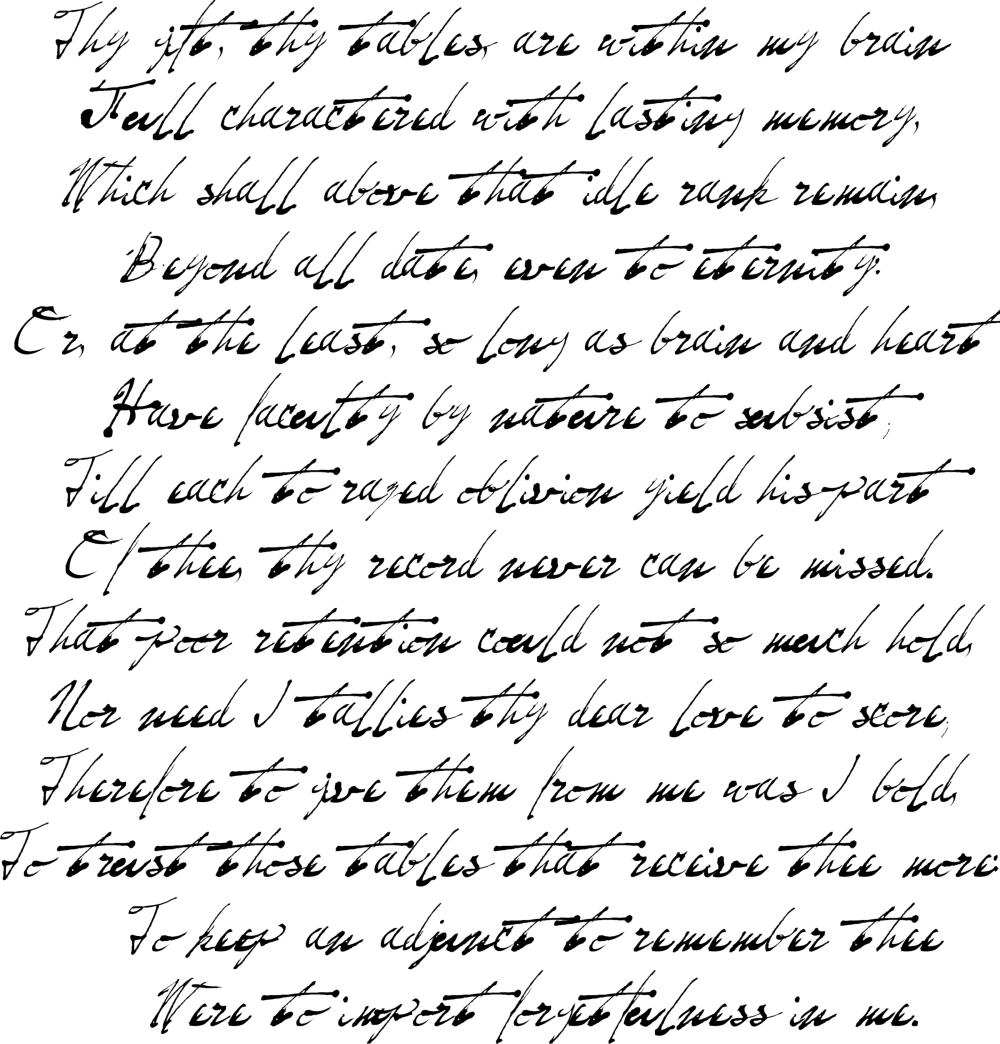 Thy gift, thy tables, are within my brain
Full charactered with lasting memory,
Which shall above that idle rank remain,
Beyond all date, even to eternity:
Or, at the least, so long as brain and heart
Have faculty by nature to subsist,
Till each to razed oblivion yield his part
Of thee, thy record never can be missed.
That poor retention could not so much hold,
Nor need I tallies thy dear love to score,
Therefore to give them from me was I bold,
To trust those tables that receive thee more:
To keep an adjunct to remember thee
Were to import forgetfulness in me.